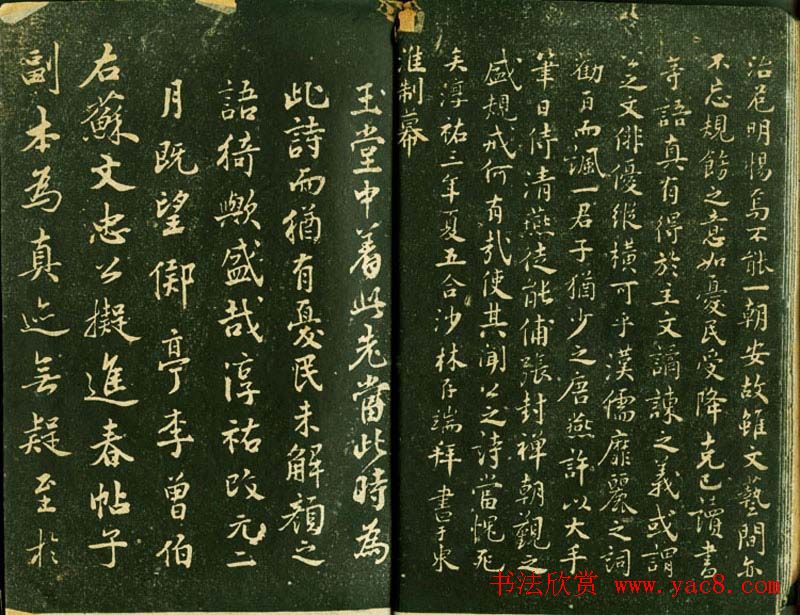 治危明惕焉不能一朝安故雖文藝間亦
不忘規飭之意如憂民受降克己讀書
等語真有得於主文譎諫之義或謂
公之文俳優縱橫可乎漢儒靡麗之詞
勸百而諷一君子猶少之唐燕許以大手
筆日侍清燕徒能鋪張封禪朝覲之
盛規戒何有哉使其聞公之詩當愧死
矣淳祐三年夏五合沙林存端拜書于東
淮制幕
玉堂中著此老當此時為
此詩而猶有憂民未解顏之
語猗歟盛哉淳祐改元二
月既望鄮亭李曾伯
右蘇文忠公擬進春帖子
副本為真迹無疑至於
书法欣赏 www.yac8.com